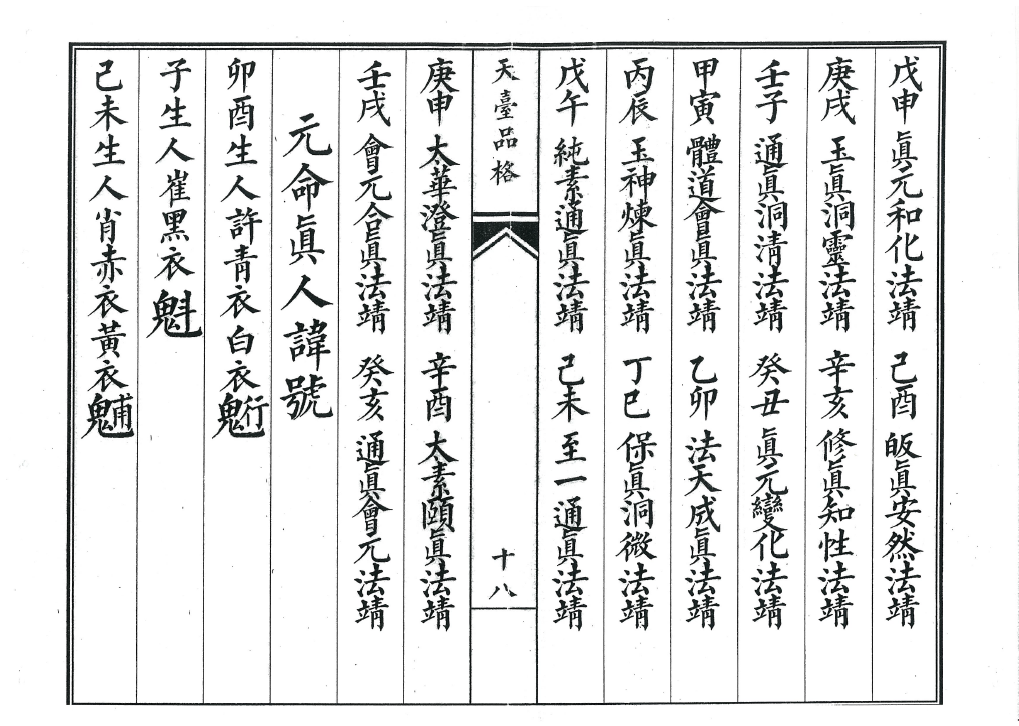 戊申 眞元和化法靖 己酉 皈眞安然法靖
庚戌 玉眞洞靈法靖 辛亥 修眞知性法靖
壬子 通眞洞淸法靖 癸丑 眞元變化法靖
甲寅 體道會眞法靖 乙卯 法天成眞法靖
丙辰 玉神煉眞法靖 丁巳 保眞洞微法靖
戊午 純素通眞法靖 己未 至一通眞法靖
天臺品格 十八
庚申 太華澄眞法靖 辛酉 太素頤眞法靖
壬戌 會元合眞法靖 癸亥 通眞會元法靖
元命眞人諱號
卯酉生人許青衣白衣
子生人崔黑衣魁
己未生人肖赤衣黃衣